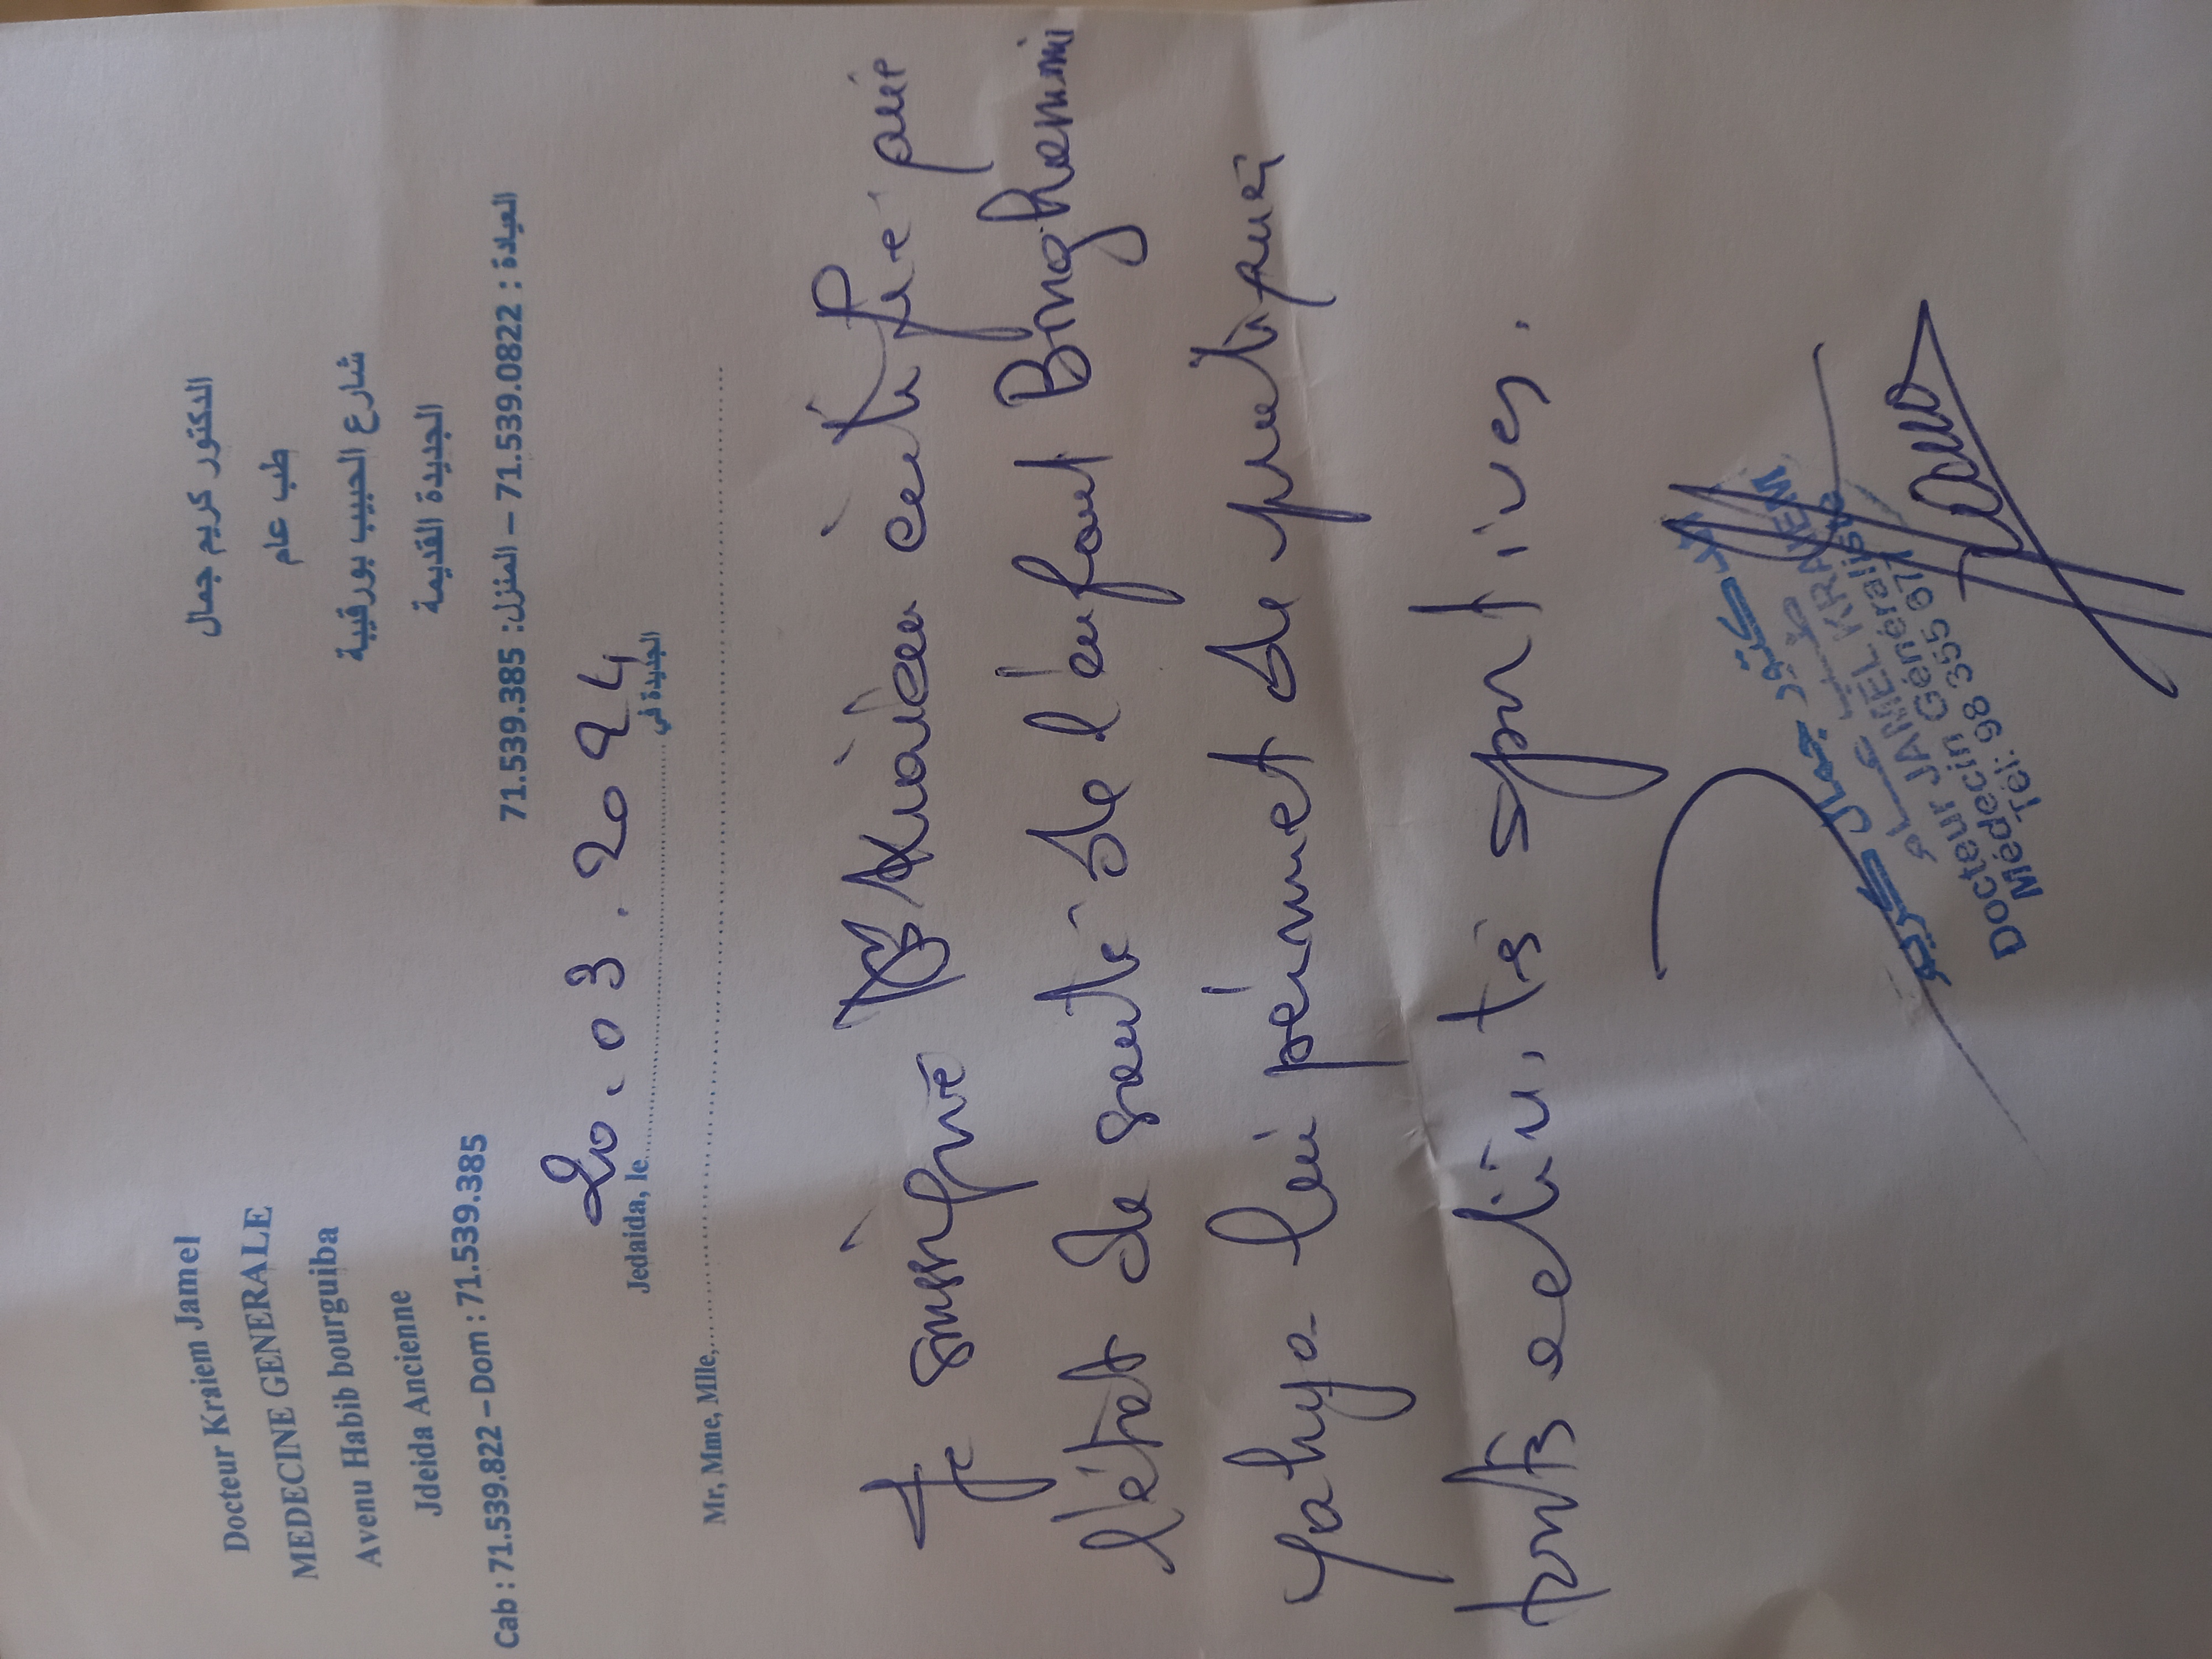 Docteur Kraiem Jamel
MEDECINE GENERALE
Avenu Habib bourguiba
Jdeida Ancienne
Cab : 71.539.822 – Dom : 71.539.385
الدكتور كريم جمال
طب عام
شارع الحبيب بورقيبة
الجديدة القديمة
العيادة : 71.539.0822 – المنزل: 71.539.385
Jedaida, le 20.03.2024 الجديدة في
Mr, Mme, Mlle,
Je soussigné Dr Kraiem certifie que
l'état de santé de l'enfant Boughanmi
Yahya lui permet de pratiquer
toutes activités sportives.
الدكتور جمال كريم
طب عام
Docteur JAMEL KRAIEM
Médecin Généraliste
Tel: 98 355 671